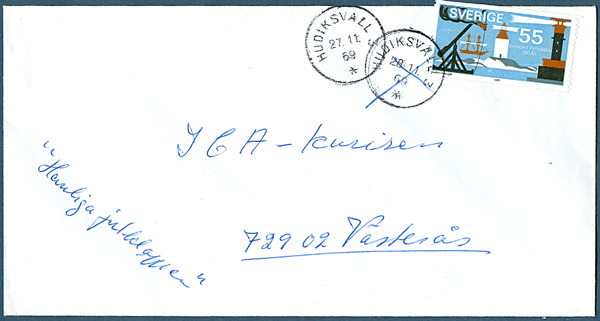 HUDIKSVALL
27.11.
69
*
HUDIKSVALL 3
28.11
69
*
SVERIGE
55
SVENSKT FYRVÄSEN
300 ÅR
ICA-kuriren
729 02 Västerås
"Hemliga julklappen"